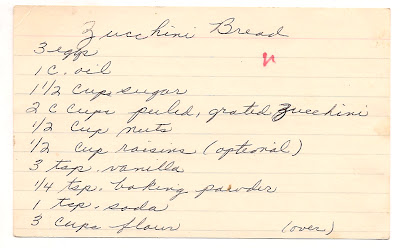 Zucchini Bread
3 eggs
1 C. oil
1 1/2 Cups sugar
2 C Cups peeled, grated Zucchini
1/2 Cup nuts
1/2 cup raisins (optional)
3 tsp. vanilla
1/4 tsp. baking powder
1 tsp. soda
3 Cups flour (over)